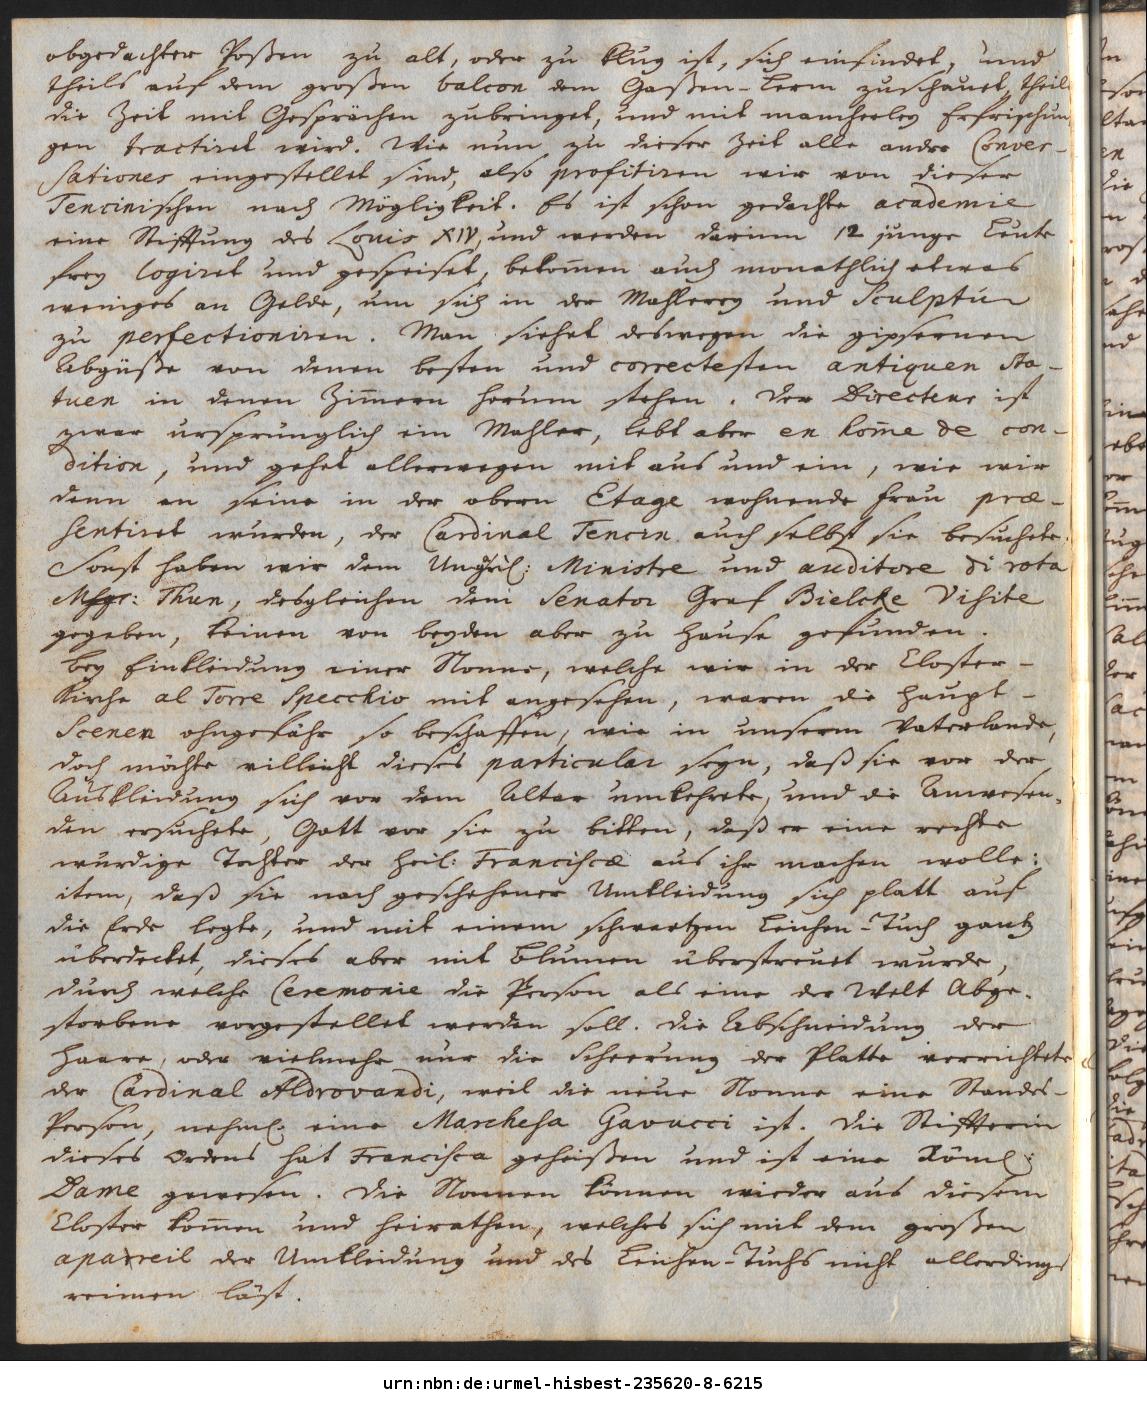 obgedachter Poßen zu alt, oder zu klug ist, sich einfindet, und
theils auf dem großen balcon dem Gaßen-Lerm zuschauet, theils
die Zeit mit Gesprächen zubringet, und mit mancherley Erfrischun
gen tractiret wird. Wie nun zu dieser Zeit alle andre Conver-
sationes eingestellet sind, also profitiren wir von dieser
Tencinischen nach Mögligkeit. Es ist schon gedachte academie
eine Stifftung des Louis XIV, und werden darinn 12 junge Leute
frey logiret und gespeiset, bekom̄en auch monathlich etwas
weniges an Gelde, um sich in der Mahlerey und Sculptur
zu perfectioniren. Man siehet deswegen die gipsernen
Abgüße von denen besten und correctesten antiquen Sta-
tuen in denen Zim̄ern herum stehen. Der Directeur ist
zwar ursprunglich ein Mahler, lebt aber en hom̄e de con-
dition, und gehet allerwegen mit aus und ein, wie wir
denn an seine in der obern Etage wohnende Frau præ-
sentiret wurden, der Cardinal Tencin auch selbst sie besuchete.
Sonst haben wir dem Ungril: Ministre und auditore di rota
Msgr: Thun, desgleichen dem Senator Graf Bielcke Visite
gegeben, keinen von beyden aber zu Hause gefunden.
Bey Einkleidung einer Nonne, welche wir in der Closter-
Kirche al Torre Specchio mit angesehen, waren die Haupt-
Scenen ohngefähr so beschaffen, wie in unserm Vaterlande,
doch möchte villeicht dieses particular seyn, daß sie vor der
Auskleidung sich vor dem Altar umkehrete, und die Anwesen-
den ersuchete, Gott vor sie zu bitten, daß er eine rechte
würdige Tochter der Heil: Franciscæ aus ihr machen wolle:
item, daß sie nach geschehener Umkleidung sich platt auf
die Erde legte, und mit einem schwartzen Leichen-Tuch gantz
überdecket, dieses aber mit Blumen überstreuet wurde,
durch welche Ceremonie die Person als eine der Welt Abge-
storbene vorgestellet werden soll. Die Abschneidung der
Haare, oder vielmehr nur die Scheerung der Platte verrichtete
der Cardinal Aldrovandi, weil die neue Nonne eine Standes-
Person, nehml. eine Marchesa Gavucci ist. Die Stiffterin
dieses Ordens hat Francisca geheißen und ist eine Röml:
Dame gewesen. Die Nonnen können wieder aus diesem
Closter kom̄en und heirathen, welches sich mit dem großen
apareil der Umkleidung und des Leichen-Tuchs nicht allerdings
reimen läst.
urn:nbn:de:urmel-hisbest-235620-8-6215